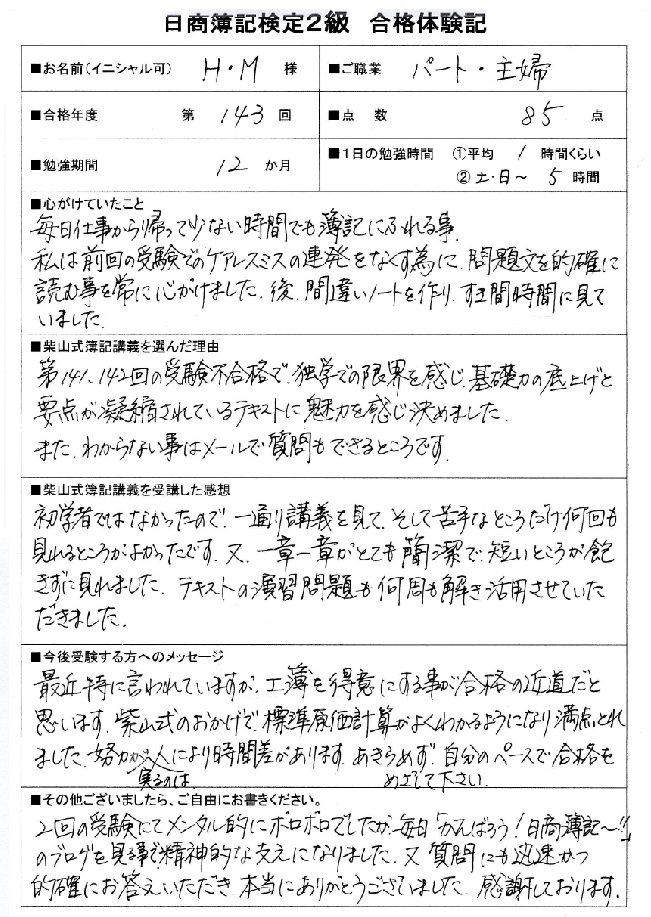 日商簿記検定2級 合格体験記
■お名前(イニシャル可) H・M 様
■ご職業 パート・主婦
■合格年度 第 143 回
■点 数 85 点
■勉強期間 12 か月
■1日の勉強時間 ①平均 1 時間くらい
②土・日〜 5 時間
■心がけていたこと
毎日仕事から帰って少ない時間でも簿記にふれる事.
私は前回の受験でのケアレスミスの連発をなくす為に、問題文を的確に
読む事を常に心がけました. 後、間違いノートを作り、すき間時間に見て
いました.
■柴山式簿記講義を選んだ理由
第141、142回の受験不合格で、独学での限界を感じ、基礎力の底上げと
要点が凝縮されているテキストに魅力を感じ決めました.
また、わからない事はメールで質問もできるところです.
■柴山式簿記講義を受講した感想
初学者ではなかったので、一通り講義を見て、そして苦手なところだけ何回も
見れるところがよかったです. 又、一章一章がとても簡潔で、短いところが飽
きずに見れました. テキストの演習問題も何周も解き活用させていた
だきました.
■今後受験する方へのメッセージ
最近特に言われていますが、工簿を得意にする事が合格の近道だと
思います. 柴山式のおかげで、標準原価計算がよくわかるようになり満点とれ
ました. 努力が人により時間差があります. あきらめず、自分のペースで合格を
実るのは めざして下さい.
■その他ございましたら、ご自由にお書きください。
2回の受験にてメンタル的にボロボロでしたが、毎日「がんばろう!日商簿記〜!!」
のブログを見る事で精神的な支えになりました. 又、質問にも迅速かつ
的確にお答えいただき、本当にありがとうございました. 感謝しております.